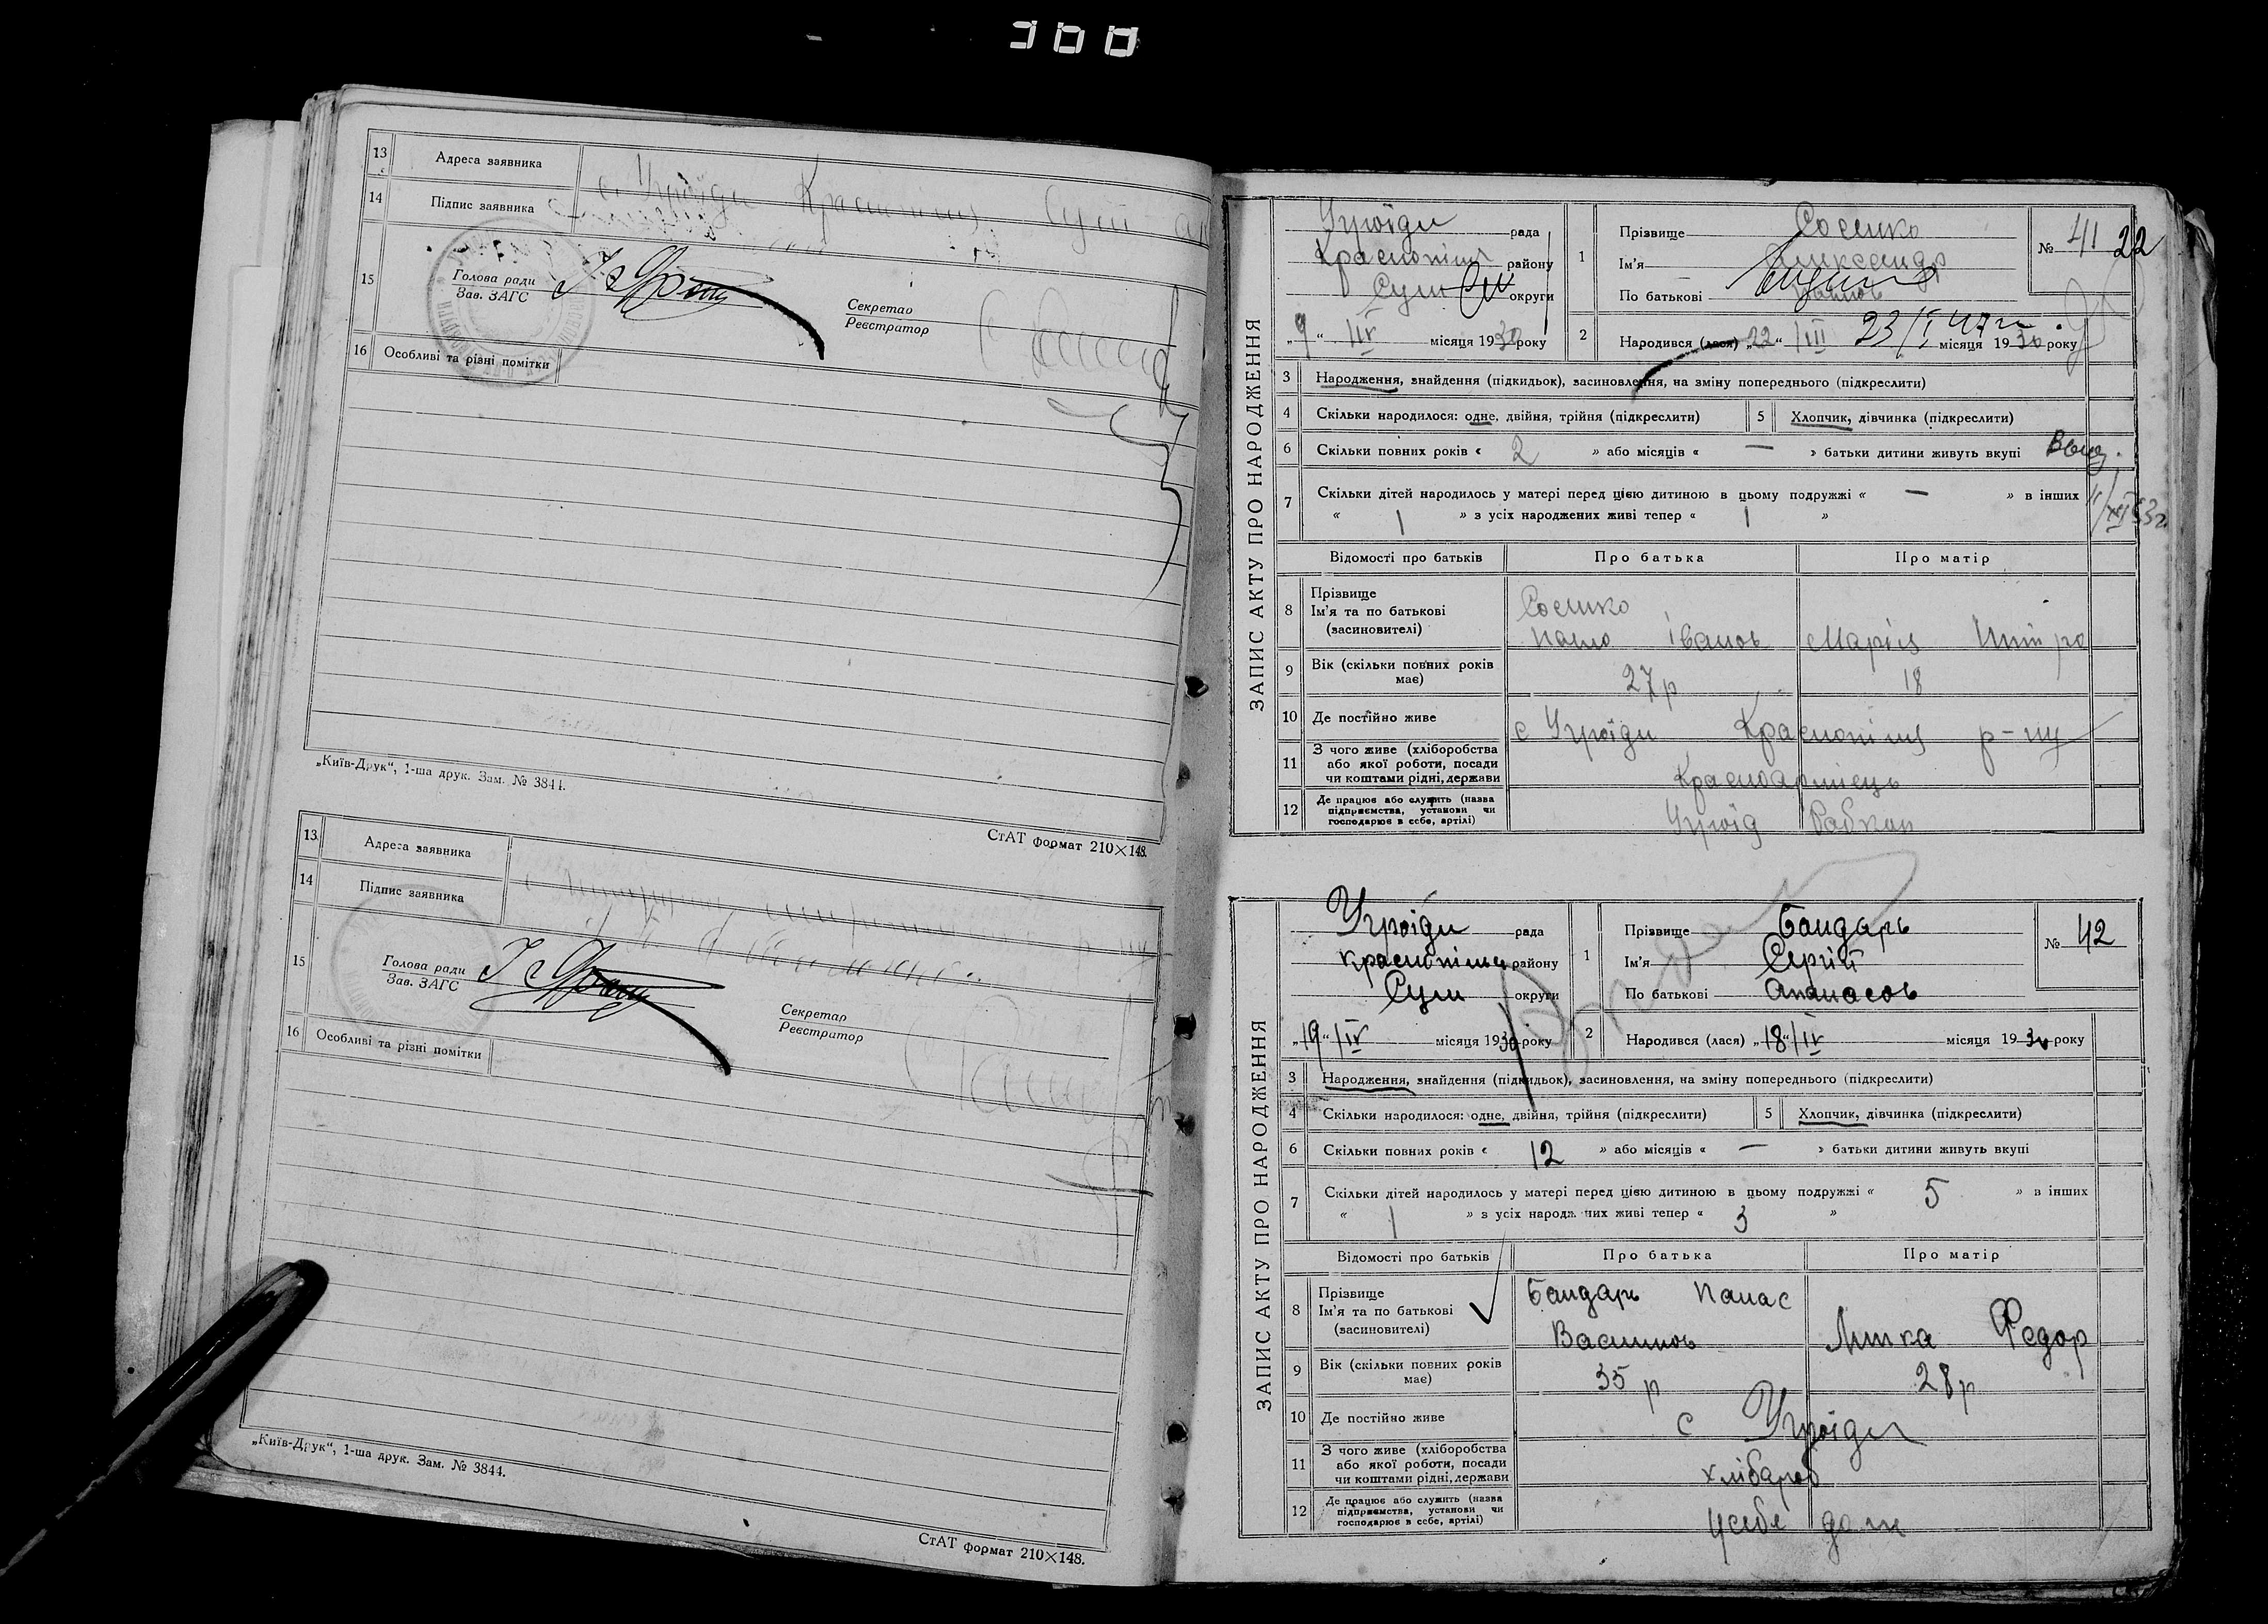 13 Адреса заявника с Угроїди Краснопіля Сум
14 Підпис заявника
15 Голова ради
Зав. ЗАГС
Секретар
Реєстратор
16 Особливі та різні помітки
„Київ-Друк“, 1-ша друк. Зам. № 3844.
СтАТ формат 210×148.
13 Адреса заявника
14 Підпис заявника
15 Голова ради
Зав. ЗАГС
Секретар
Реєстратор
16 Особливі та різні помітки
„Київ-Друк“, 1-ша друк. Зам. № 3844.
СтАТ формат 210×148.
ЗАПИС АКТУ ПРО НАРОДЖЕННЯ
Угроїди рада
Краснопіля району
Сум округи
„9“ /IV місяця 1930 року
1 Прізвище
Ім'я Александр
По батькові
№ 41 22
2 Народився (лася) „22“ /III місяця 1930 року
23/I 47 г.
3 Народження, знайдення (підкидьок), засиновлення, на зміну попереднього (підкреслити)
4 Скільки народилося: одне, двійня, трійня (підкреслити)
5 Хлопчик, дівчинка (підкреслити)
6 Скільки повних років « 2 » або місяців « — » батьки дитини живуть вкупі
7 Скільки дітей народилось у матері перед цією дитиною в цьому подружжі « — » в інших
« 1 » з усіх народжених живі тепер « 1 »
Відомості про батьків Про батька Про матір
8 Прізвище
Ім'я та по батькові
(засиновителі)
Іванов Марія
9 Вік (скільки повних років має) 27 р 18
10 Де постійно живе с Угроїди Краснопіля р-ну
11 З чого живе (хліборобства
або якої роботи, посади
чи коштами рідні, держави Красноармієць
12 Де працює або служить (назва
підприємства, установи чи
господарює в себе, артілі) Угроїд Рабкоп
ЗАПИС АКТУ ПРО НАРОДЖЕННЯ
Угроїди рада
Краснопілля району
Сум округи
„19“ /IV місяця 1930 року
1 Прізвище Бандарь
Ім'я Сергій
По батькові Апанасов
№ 42
2 Народився (лася) „18“ /IV місяця 1930 року
3 Народження, знайдення (підкидьок), засиновлення, на зміну попереднього (підкреслити)
4 Скільки народилося: одне, двійня, трійня (підкреслити)
5 Хлопчик, дівчинка (підкреслити)
6 Скільки повних років « 12 » або місяців « — » батьки дитини живуть вкупі
7 Скільки дітей народилось у матері перед цією дитиною в цьому подружжі « 5 » в інших
« 1 » з усіх народжених живі тепер « 3 »
Відомості про батьків Про батька Про матір
8 Прізвище
Ім'я та по батькові
(засиновителі)
Бандарь Панас
Васильов Федор
9 Вік (скільки повних років має) 35 р 28 р
10 Де постійно живе с Угроїди
11 З чого живе (хліборобства
або якої роботи, посади
чи коштами рідні, держави хлібароб
12 Де працює або служить (назва
підприємства, установи чи
господарює в себе, артілі) у себе дома